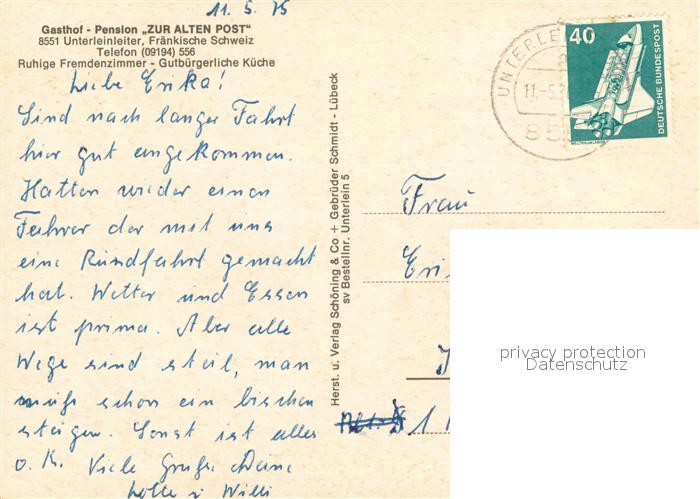 11. 5. 75
Gasthof - Pension „ZUR ALTEN POST"
8551 Unterleinleiter, Fränkische Schweiz
Telefon (09194) 556
Ruhige Fremdenzimmer - Gutbürgerliche Küche
Liebe Erika!
Sind nach langer Fahrt
hier gut angekommen.
Hatten wieder einen
Fahrer der mit uns
eine Rundfahrt gemacht
hat. Wetter und Essen
ist prima. Aber alle
Wege sind steil, man
muß schon ein bischen
steigen. Sonst ist alles
o. K. Viele Grüße Deine
Lotte u Willi
Herst. u. Verlag Schöning & Co + Gebrüder Schmidt - Lübeck
sv Bestellnr. Unterlein 5
UNTERLE
11.-5.7
85
40
DEUTSCHE BUNDESPOST
WELTRAUMLABOR
Frau
Eri
1
privacy protection
Datenschutz